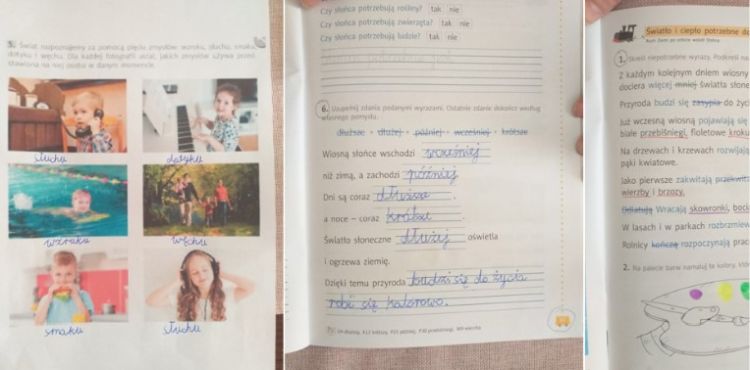 5. Świat rozpoznajemy za pomocą pięciu zmysłów: wzroku, słuchu, smaku,
dotyku i węchu. Dla każdej fotografii ustal, jakich zmysłów używa przed-
stawiona na niej osoba w danym momencie.
słuchu
dotyku
wzroku
węchu
smaku
słuchu
Czy słońca potrzebują rośliny? tak nie
Czy słońca potrzebują zwierzęta? tak nie
Czy słońca potrzebują ludzie? tak nie
6. Uzupełnij zdania podanymi wyrazami. Ostatnie zdanie dokończ według
własnego pomysłu.
dłuższe • dłużej • później • wcześniej • krótsze
Wiosną słońce wschodzi wcześniej
niż zimą, a zachodzi później
Dni są coraz dłuższe .
a noce – coraz krótsze .
Światło słoneczne dłużej oświetla
i ogrzewa ziemię.
Dzięki temu przyroda budzi się do życia
robi się kolorowo.
Światło i ciepło potrzebne do
1. Skreśl niepotrzebne wyrazy. Podkreśl na
Z każdym kolejnym dniem wiosny
dociera więcej mniej światła słone
Przyroda budzi się zasypia do życ
Już wczesną wiosną pojawiają się
białe przebiśniegi, fioletowe kroku
Na drzewach i krzewach rozwijają
pąki kwiatowe.
Jako pierwsze zakwitają przekwita
wierzby i brzozy.
Odlatują Wracają skowronki, boci
W lasach i w parkach rozbrzmiew
Rolnicy kończą rozpoczynają prac
2. Na palecie barw namaluj te kolory, któr